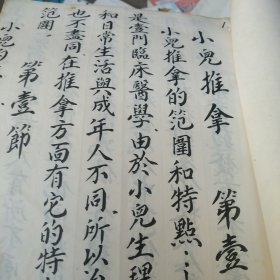 小兒推拿 第壹
小兒推拿的范圍和特點：
是壹門臨床醫學，由於小兒生理
和日常生活與成年人不同，所以治
也不盡同，在推拿方面有它的特
范圍
第壹節
小兒